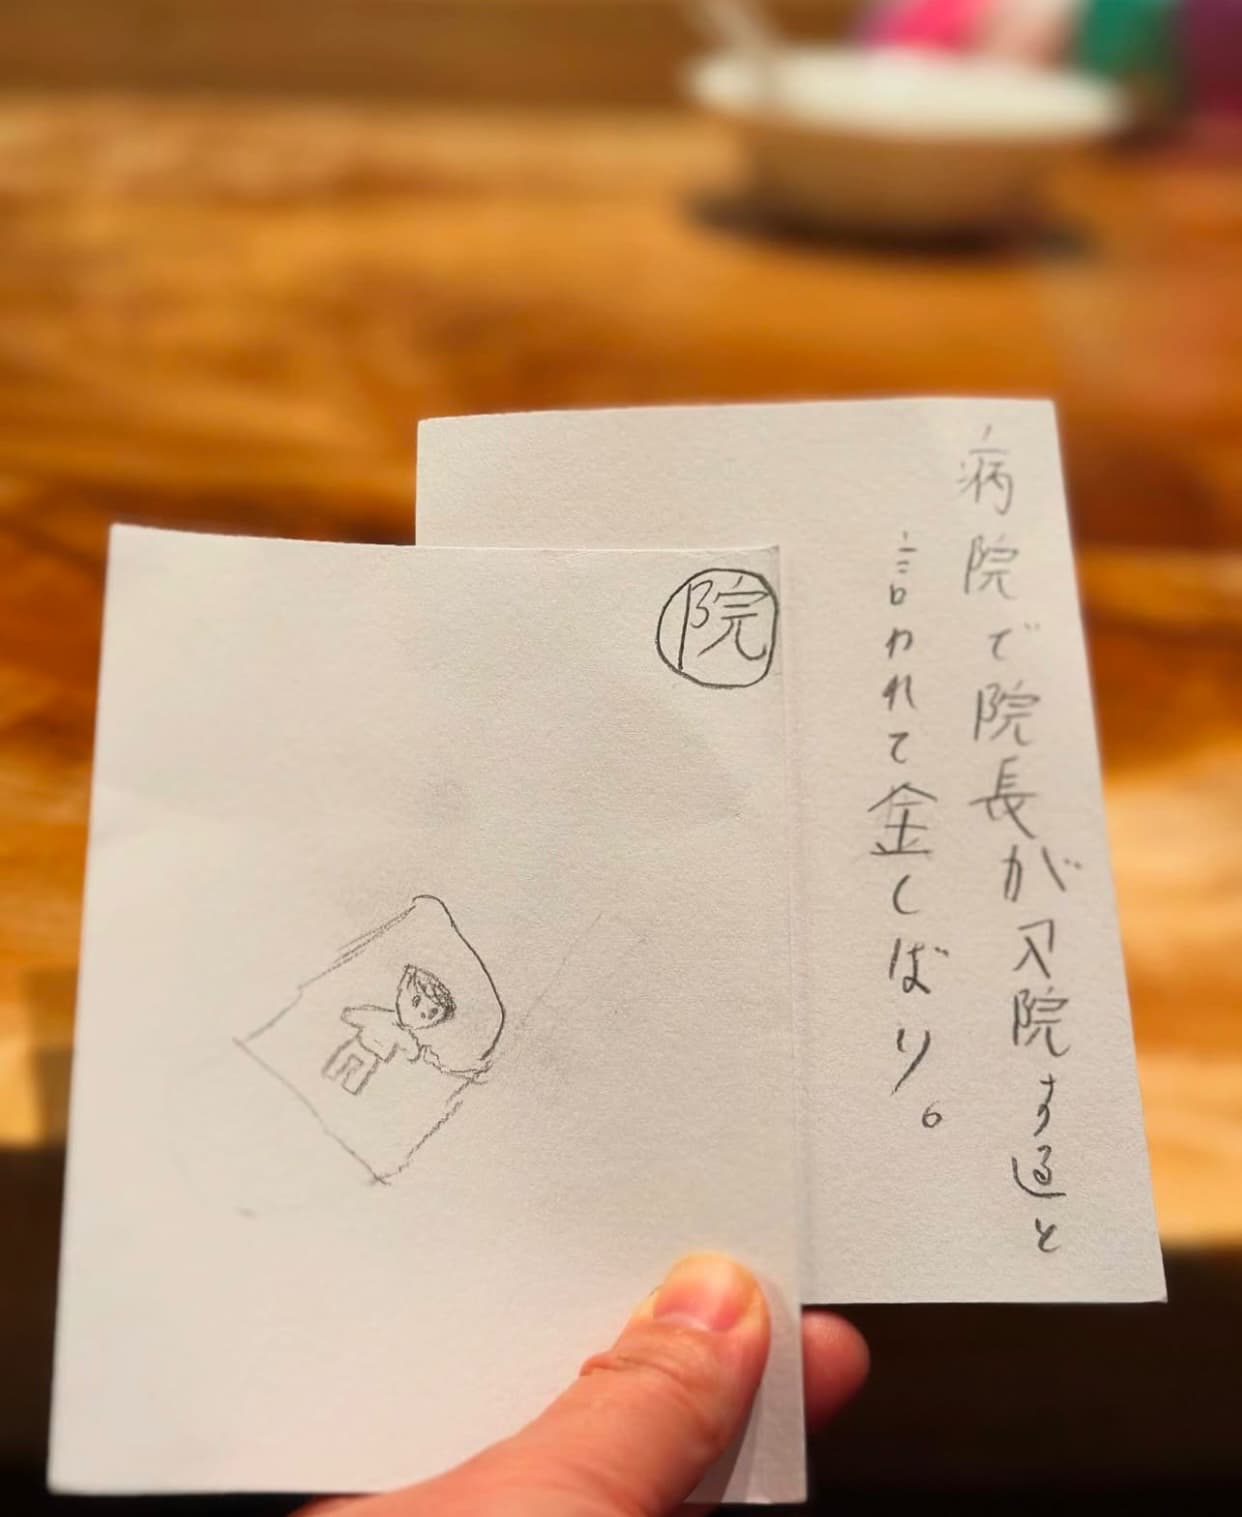 病院で院長が入院すると
言われて金しばり。
院